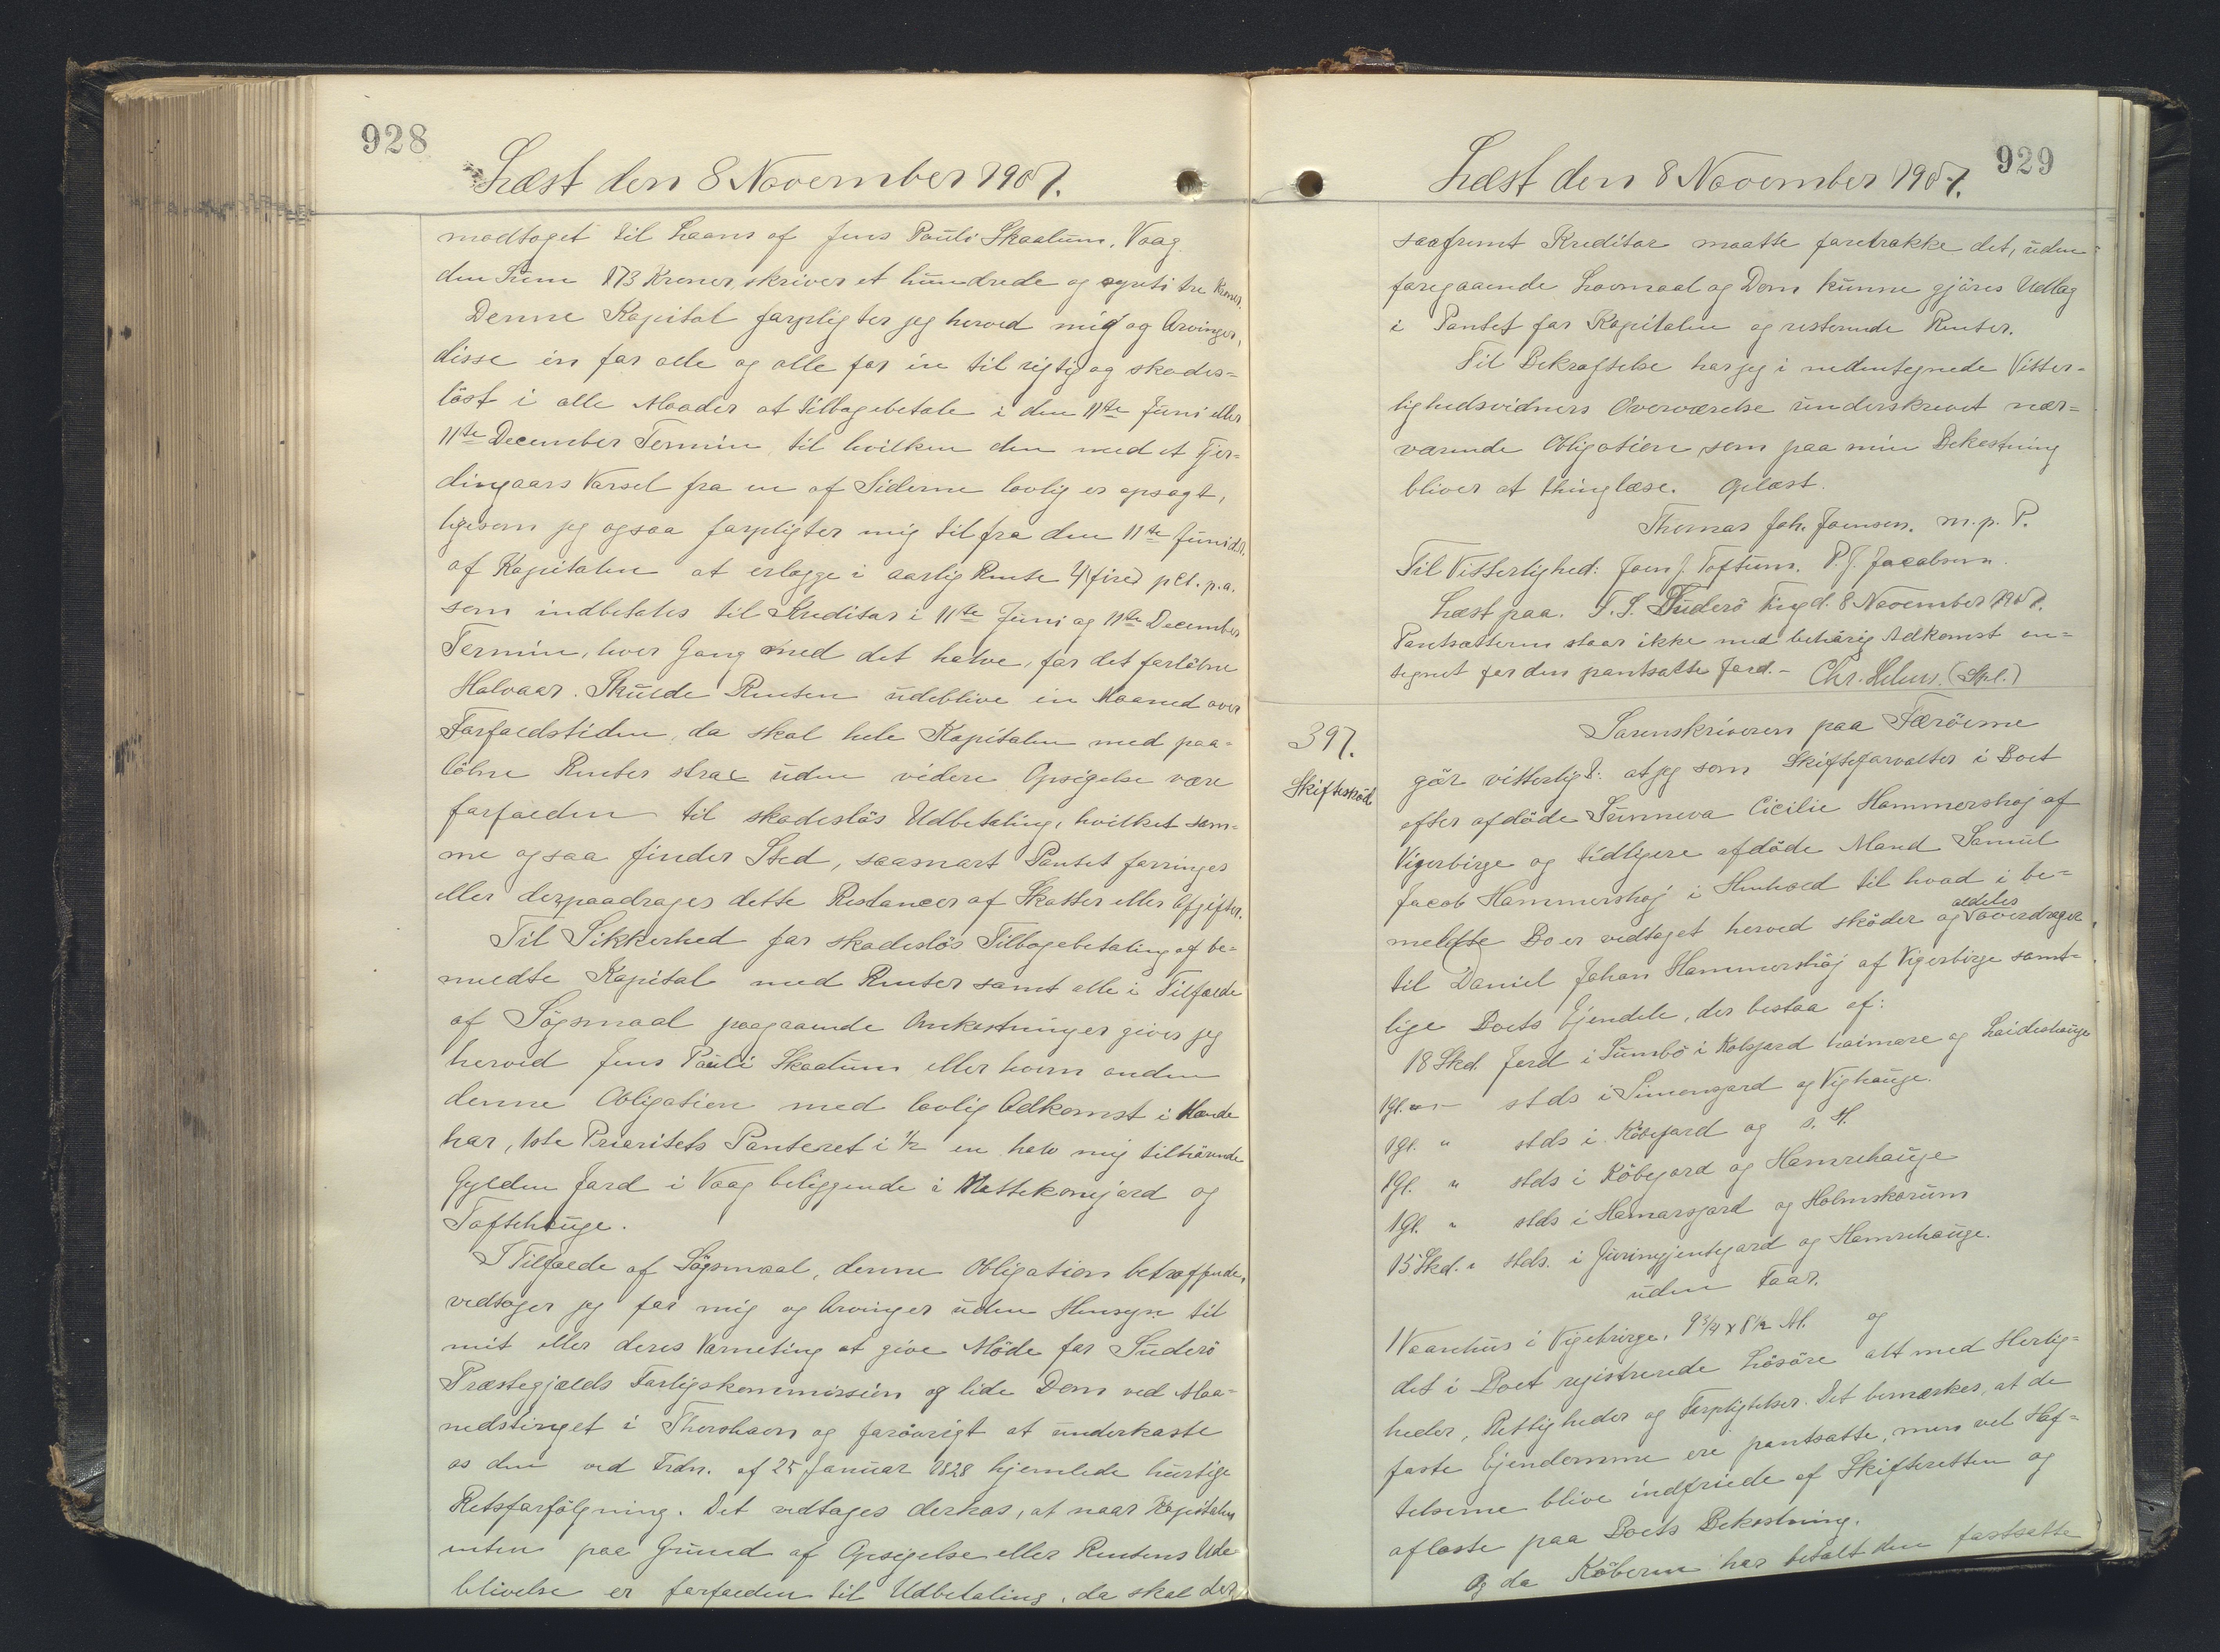 928
Læst den 8 November 1907.
modtaget til Laans af Jens Pauli Skaalum, Vaag
den Sum 173 Kroner, skriver et hundrede og sytti tre Kroner.
Denne Kapital forpligter jeg herved mig og Arvinger,
disse en for alle og alle for en til rigtig og skades=
löst i alle Maader at tilbagebetale i den 11te Juni eller
11te December Termin, til hvilken den med et Fjer=
dingaars Varsel fra en af Siderne lovlig er opsagt,
ligesom jeg ogsaa forpligter mig til fra den 11te Juni d.A.
af Kapitalen at erlægge i aarlig Rente 4 (fire) pCt. p.a.
som indbetales til Kreditor i 11te Juni og 11te December
Termin, hver Gang med det halve, for det forlöbne
Halvaar. Skulde Renten udeblive en Maaned over
Forfaldstiden, da skal hele Kapitalen med paa=
löbne Renter strax uden videre Opsigelse være
forfalden til skadeslös Udbetaling, hvilket sam=
me ogsaa finder Sted, saasnart Pantet forringes
eller derpaadrages dette Restancer af Skatter eller Afgifter.
Til Sikkerhed for skadeslös Tilbagebetaling af be=
meldte Kapital med Renter samt alle i Tilfælde
af Sögsmaal paagaaende Omkostninger giver jeg
herved Jens Pauli Skaalum eller hvem anden
denne Obligation med lovlig Adkomst i Hænde
har, 1ste Prioritets Panteret i 1/2 en halv mig tilhörende
Gylden Jord i Vaag beliggende i Mattekonejord og
Toftehauge.
I Tilfælde af Sögsmaal, denne Obligation betræffende,
vedtager jeg for mig og Arvinger uden Hensyn til
mit eller deres Værneting at give Möde for Suderö
Præstegjælds Forligskommission og lide Dom ved Maa=
nedstinget i Thorshavn og forövrigt at underkaste
os den ved Frdn. af 25 Januar 1828 hjemlede hurtige
Retsforfölgning. Det vedtages derhos, at naar Kapitalen
enten paa Grund af Opsigelse eller Rentens Ude=
blivelse er forfalden til Udbetaling, da skal der,
929
Læst den 8 November 1907.
saafremt Kreditor maatte foretrække det, uden
foregaaende Lovmaal og Dom kunne gjöres Udlæg
i Pantet for Kapitalen og resterende Renter.
Til Bekræftelse har jeg i nedentegnede Vitter=
lighedsvidners Overværelse underskrevet nær=
værende Obligation som paa min Bekostning
bliver at thinglæse. Oplæst.
Thomas Joh. Joensen. m.p. P.
Til Vitterlighed: Joen J. Toftum. P. J. Jacobsen.
Læst paa. F. S. Suderö Ting d. 8 November 1907.
Pantsætteren staar ikke med behörig Adkomst an=
tegnet for den pantsatte Jord. - Chr. Selmer. (Spl.)
397.
Skifteskøde
Sorenskriveren paa Færöerne
gör vitterligt: at jeg som Skifteforvalter i Boet
efter afdöde Sunneva Cicilie Hammershøj af
Vigerbirge og tidligere afdöde Mand Samuel
Jacob Hammershøj i Henhold til hvad i be=
meldte Bo er vedtaget herved sköder og aldeles overdrager
til Daniel Johan Hammershöj af Vigerbirge samt=
lige Boets Ejendele, der bestaa af:
18 Skd. Jord i Sumbö i Kolsjord haimare og Laideshauge
1 Gl. " stds i Simonsjord og Vighauge.
1 Gl. " stds i Köbejord og s. H.
1 Gl. " stds i Köbejord og Hamrehauge
1 Gl. " stds i Hamarsjord og Holmskorum
15 Skd. " stds. i Juringjentejord og Hamrehauge.
uden Faar.
1 Vaanehus i Vigebirge, 9 3/4 x 8 1/2 Al. og
det i Boet registrerede Lösöre alt med Herlig=
heder, Rettigheder og Forpligtelser. Det bemærkes, at de
faste Ejendomme ere pantsatte, men vel Hæf=
telserne blive indfriede af Skifteretten og
aflæste paa Boets Bekostning.
Og da Köberen har betalt den fastsatte